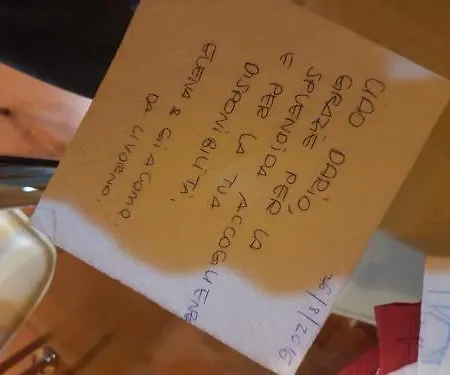 26/8/2015
CIAO DARIO,
GRAZIE PER LA
SPLENDIDA ACCOGLIENZA
E PER LA TUA
DISPONIBILITÀ,
ELENA & GIACOMO
DA LIVORNO.